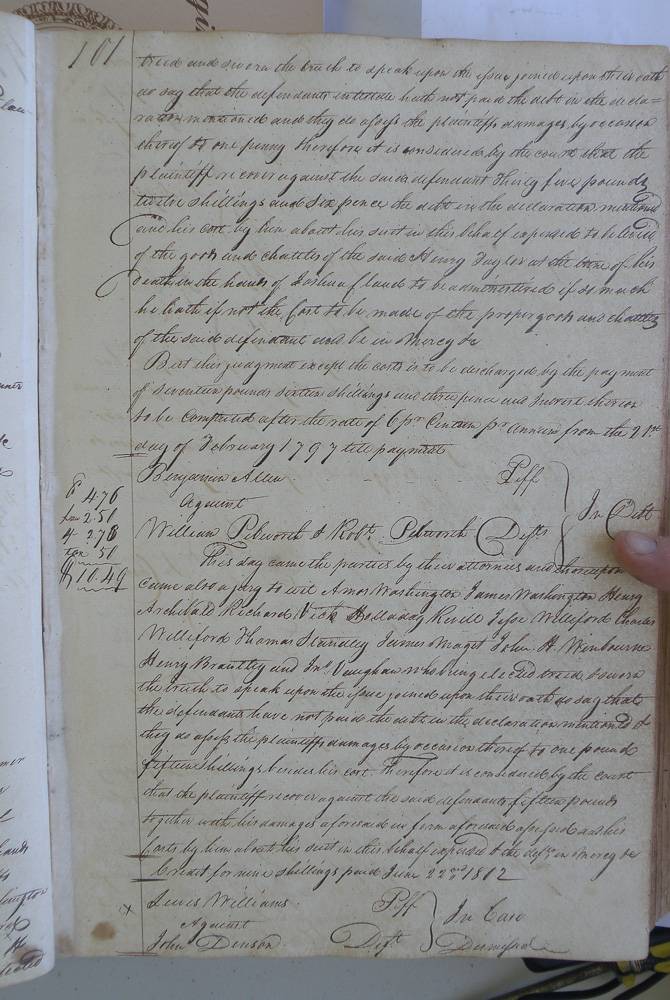 101
tried and sworn the truth to speak upon the issue joined upon their oath
do say that the defendants intestate hath not paid the debt in the decla=
ration mentioned and they do assess the plaintiffs damages by occasion
thereof to one penny Therefore it is considered by the court that the
plaintiff recover against the said defendant Thirty five pounds
twelve shillings and Six pence the debt in the declaration mentioned
and his cost by him about his suit in this behalf expended to be levied
of the goods and chattles of the said Henry Taylor at the time of his
death in the hands of Joshua Claud to be administered if so much
he hath if not the Cost to be made of the proper goods and chattles
of the said defendant and be in Mercy &c
But this judgment except the costs is to be discharged by the payment
of seventeen pounds sixteen shillings and three pence and Interest thereon
to be Computed after the rate of 6 pr Centum pr annum from the 21st
day of February 1797 till payment
Benjamin Allen Plff
against
In Debt
William Pebworth & Robt. Pebworth Defts
C 4.76
2.51
4 2.78
tax 50
$10.49
This day came the parties by their attornies and thereupon
came also a jury to wit Amos Washington James Washington Henry
Archibald Richard Vick Holladay Revill Jesse Williford Charles
Williford Thomas Standley James Maget John H. Winbourne
Henry Brantley and Jno. Vaughan who being elected tried & sworn
the truth to speak upon the issue joined upon their oath do say that
the defendants have not paid the debt in the declaration mentioned &
they do assess the plaintiffs damages by occasion thereof to one pound
fifteen shillings besides his cost. Therefore it is considered by the court
that the plaintiff recover against the said defendants fifteen pounds
together with his damages aforesaid in form aforesaid assessed and his
Costs by him about his suit in this behalf expended & the defts in Mercy &c
Credit for nine shillings paid June 22nd 1812
x Lewis Williams Plff
Against
In Case
John Denson Deft
Dismissed